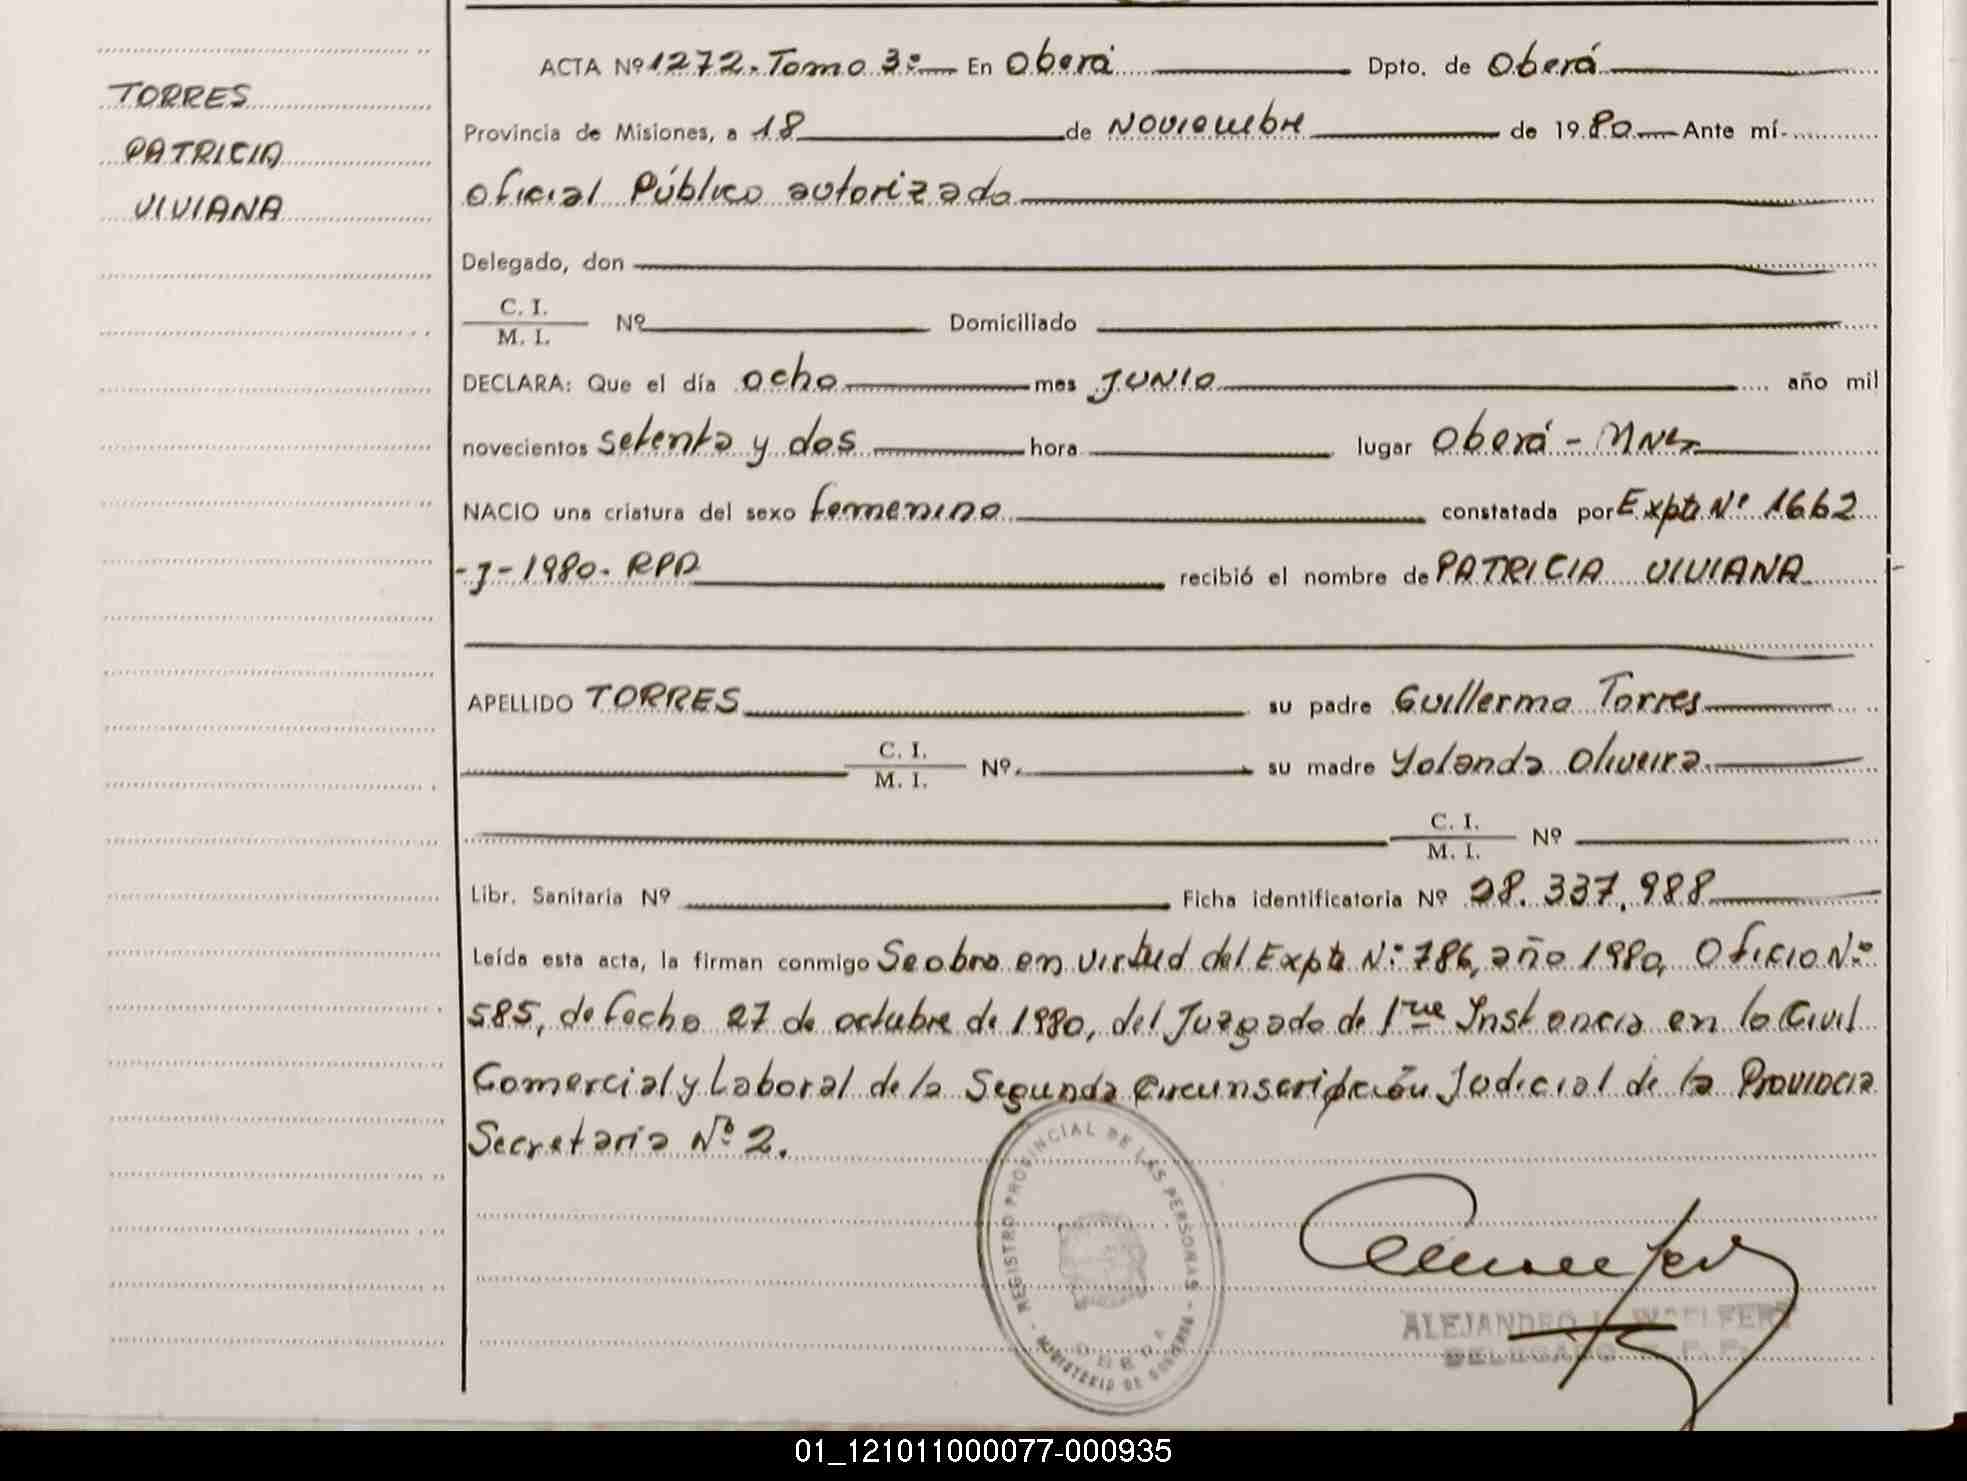 TORRES
PATRICIA
VIVIANA
ACTA Nº 1272. Tomo 3º En Oberá Dpto. de Oberá
Provincia de Misiones, a 18 de Noviembre de 1980 Ante mí-
Oficial Público autorizado
Delegado, don
C. I.
M. I. Nº Domiciliado
DECLARA: Que el día ocho mes JUNIO año mil
novecientos setenta y dos hora lugar Oberá -
NACIO una criatura del sexo femenino constatada por Expte Nº 1662
-J-1980. RPP recibió el nombre de PATRICIA VIVIANA
APELLIDO TORRES su padre Guillermo Torres
C. I.
M. I. Nº. su madre Yolanda Oliveira
C. I.
M. I. Nº
Libr. Sanitaria Nº Ficha identificatoria Nº 28.337.988
Leída esta acta, la firman conmigo Se obra en virtud del Expte Nº 786, año 1980, Oficio Nº
585, de fecha 27 de octubre de 1980, del Juzgado de 1ra Instancia en lo Civil
Comercial y Laboral de la Segunda Circunscripción Judicial de la Provincia
Secretaría Nº 2.
REGISTRO PROVINCIAL DE LAS PERSONAS - MINISTERIO DE GOBIERNO -
OBERA
ALEJANDRO
DELEGADO R. P. P.
01_121011000077-000935